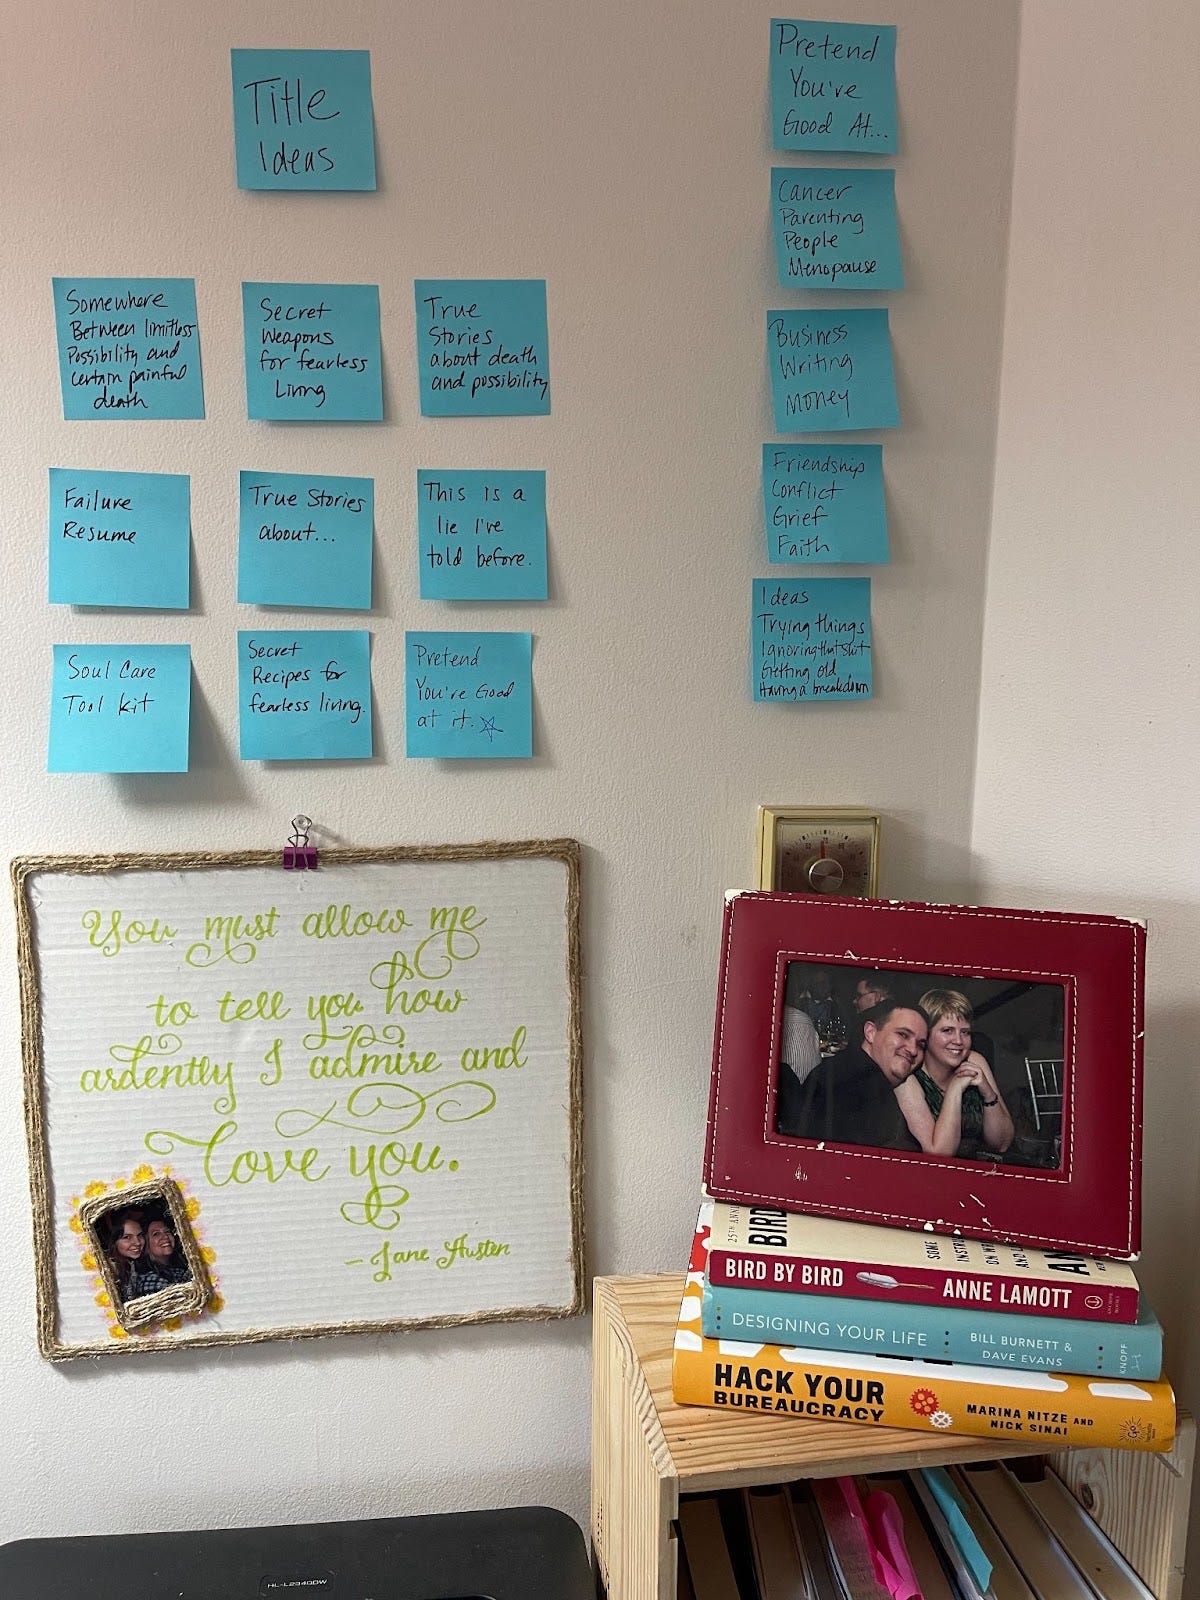 Title
Ideas
Somewhere
Between limitless
Possibility and
certain painful
death
Secret
Weapons
for fearless
Living
True
Stories
about death
and possibility
Failure
Resume
True Stories
about...
This is a
lie I've
told before.
Soul Care
Tool kit
Secret
Recipes for
fearless living.
Pretend
You're Good
at it.
Pretend
You've
Good At...
Cancer
Parenting
People
Menopause
Business
Writing
Money
Friendship
Conflict
Grief
Faith
Ideas
Trying things
Ignoring that shit
Getting old
Having a breakdown
You must allow me
to tell you how
ardently I admire and
love you.
— Jane Austen
25TH ANNI
BIRD
SOME
INSTRU
ON W
AND L
AN
BIRD BY BIRD ANNE LAMOTT
DESIGNING YOUR LIFE BILL BURNETT &
DAVE EVANS
KNOPF
HACK YOUR
BUREAUCRACY
MARINA NITZE AND
NICK SINAI
Go
HL-L2340DW